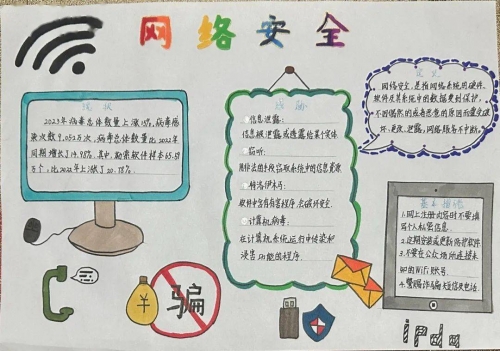 网络安全
现状
2023年病毒总体数量上涨
染次数9,052万次,病毒总体数量比2022年
同期增长了14.98%.其中,勒索软件样本65.59
万个,比2022年上涨了20.78%.
信息泄露:
信息被泄露或透露给某个实体
窃听:
用合法的手段窃取系统中的信息资源
特洛伊木马:
软件中含有有害程序,会破坏安全.
计算机病毒:
在计算机系统运行中传染和
侵害功能的程序.
定义
网络安全,是指网络系统的硬件、
软件及其系统中的数据受到保护,
不因偶然的或者恶意的原因而遭受破
坏、更改、泄露,网络服务不中断.
基本措施
1.网上注册内容时不要填
写个人私密信息.
2.定期安装或更新防护软件
3.不要在公众场所连接未
知的WiFi账号.
4.警惕诈骗短信及电话.
¥
骗
ipda